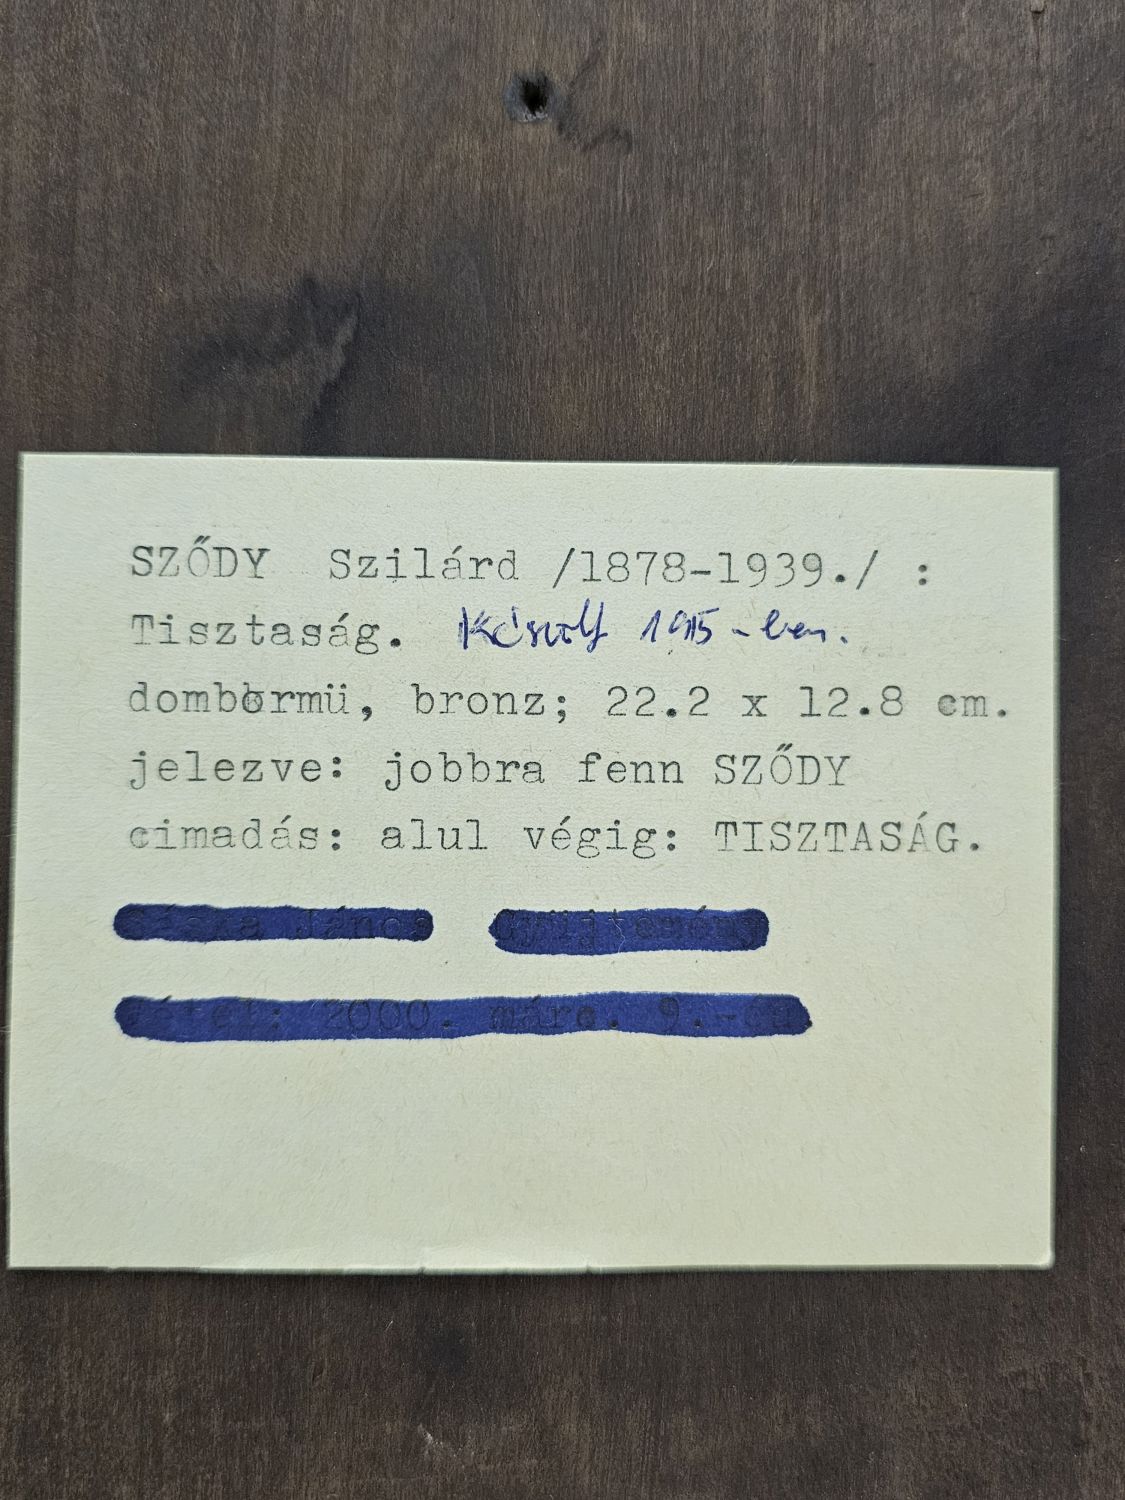 SZŐDY Szilárd /1878-1939./ :
Tisztaság. Készült 1915-ben.
dombormü, bronz; 22.2 x 12.8 cm.
jelezve: jobbra fenn SZŐDY
cimadás: alul végig: TISZTASÁG.
János Gyüjtemény
vétel: 2000. márc. 9.-én.